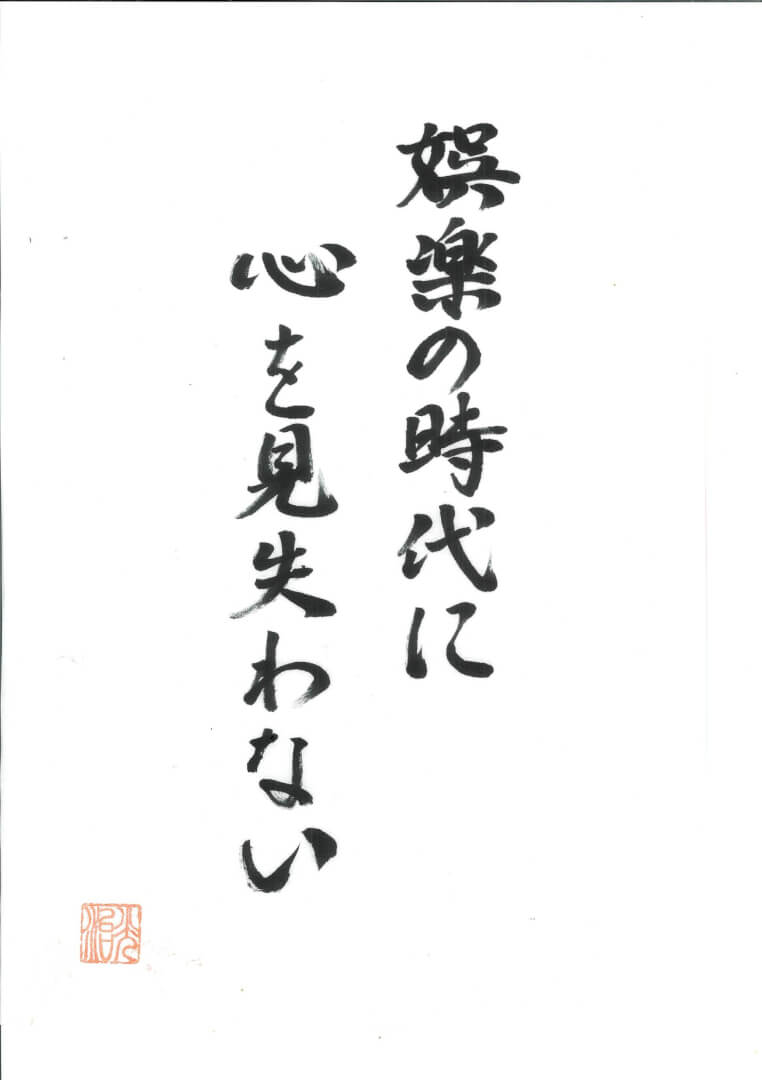 娯楽の時代に
心を見失わない